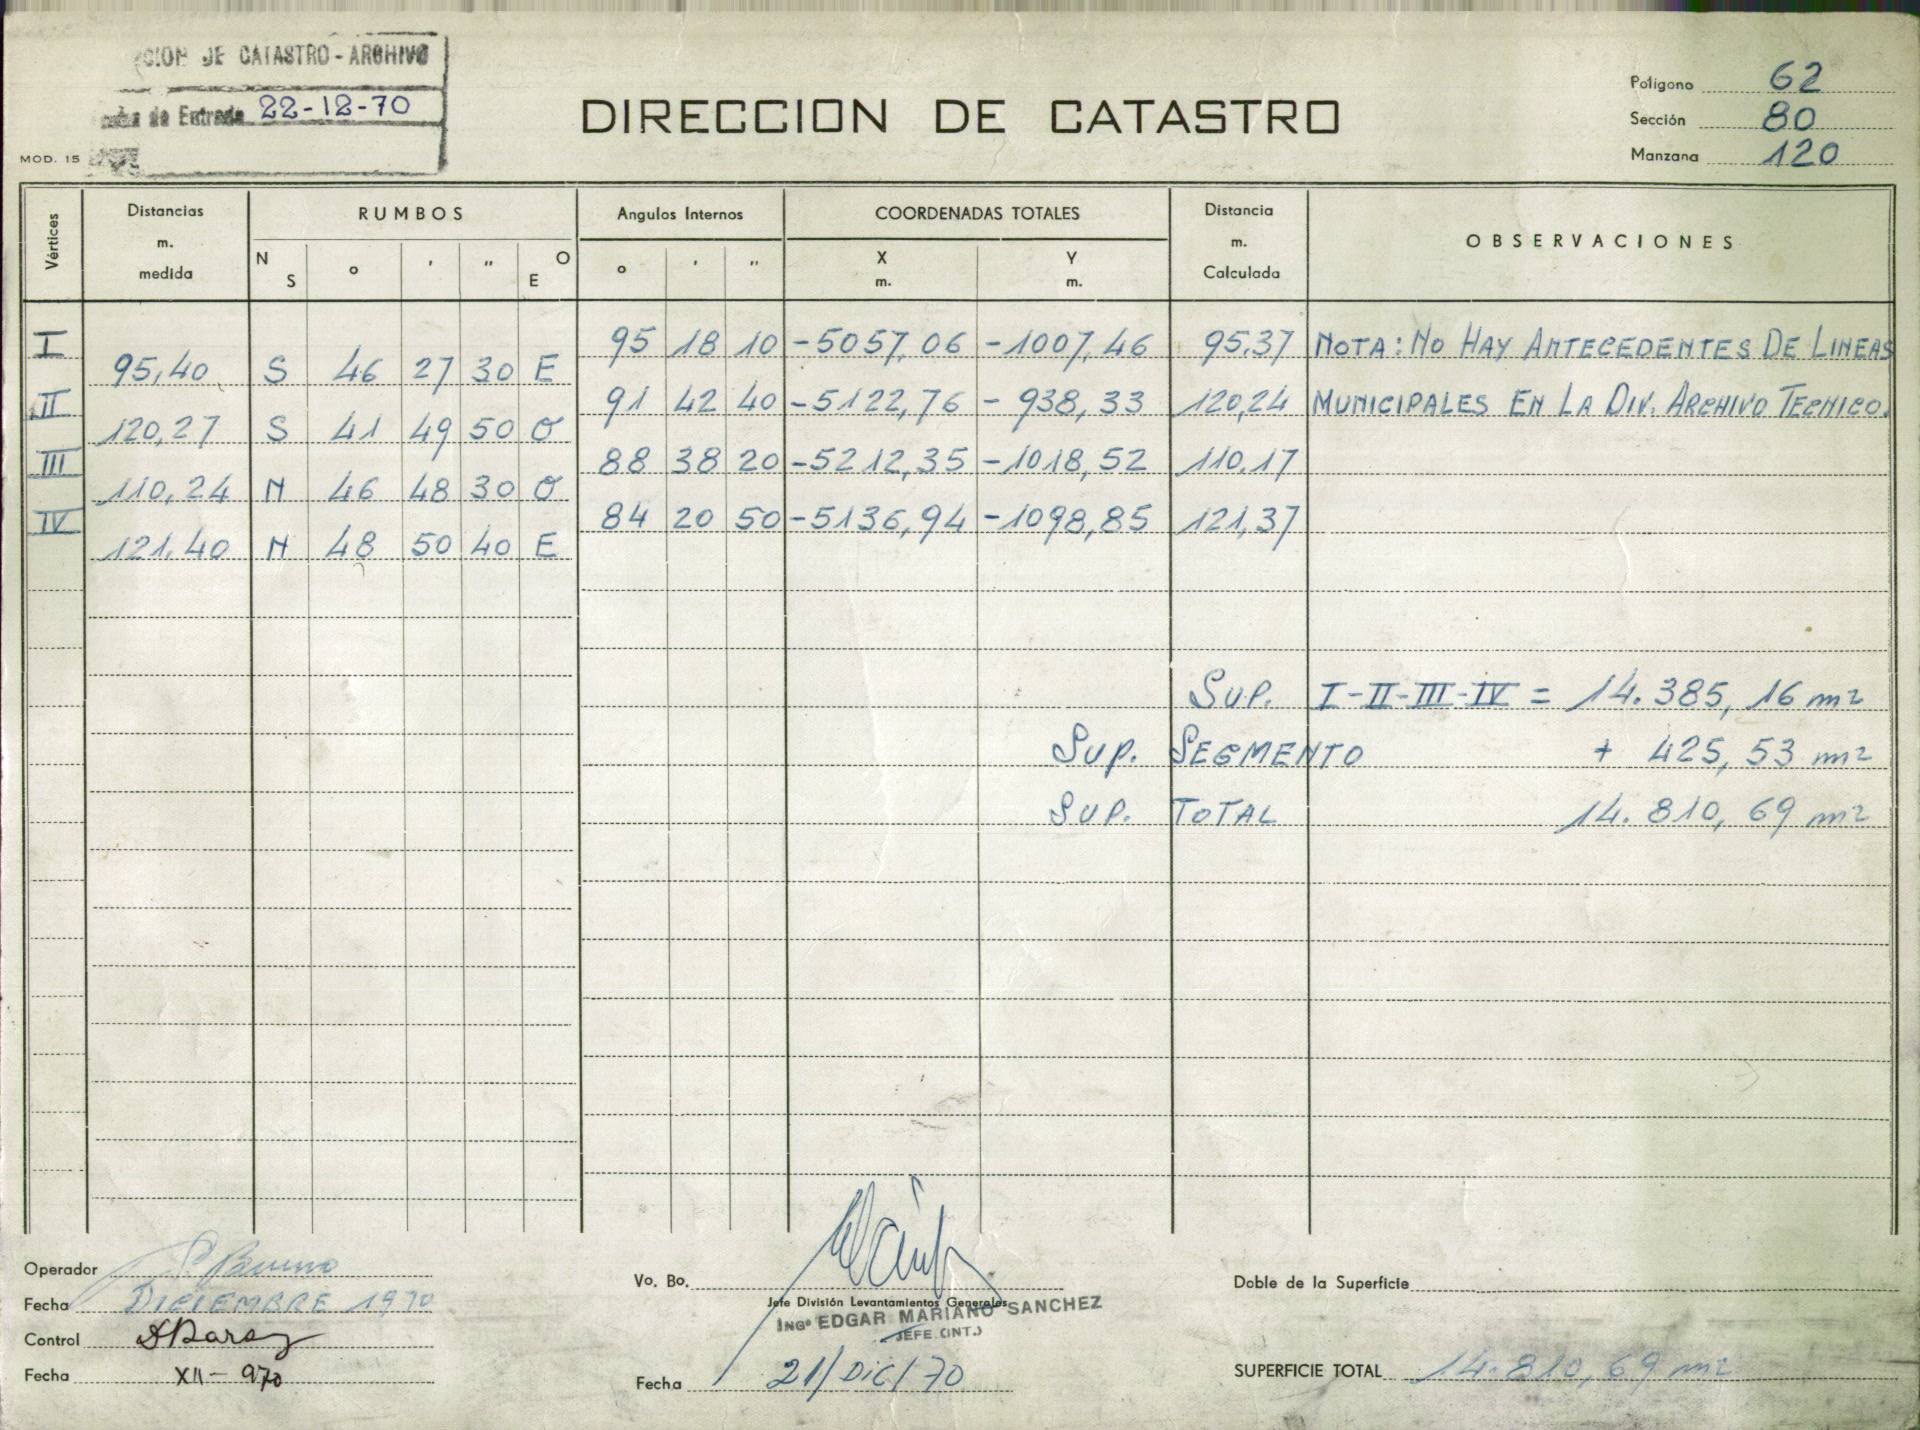 CION DE CATASTRO - ARCHIVO
de Entrada 22-12-70
MOD. 15
DIRECCION DE CATASTRO
Polígono 62
Sección 80
Manzana 120
Vértices
Distancias m. medida
RUMBOS
N S ° ' " O E
Angulos Internos
° ' "
COORDENADAS TOTALES
X m. Y m.
Distancia m. Calculada
OBSERVACIONES
I 95 18 10 -5057,06 -1007,46 95,37 NOTA: NO HAY ANTECEDENTES DE LINEAS
95,40 S 46 27 30 E
II 91 42 40 -5122,76 - 938,33 120,24 MUNICIPALES EN LA DIV. ARCHIVO TECNICO.
120,27 S 41 49 50 O
III 88 38 20 -5212,35 -1018,52 110,17
110,24 N 46 48 30 O
IV 84 20 50 -5136,94 -1098,85 121,37
121,40 N 48 50 40 E
SUP. I-II-III-IV = 14.385,16 m2
SUP. SEGMENTO + 425,53 m2
SUP. TOTAL 14.810,69 m2
Operador
Fecha DICIEMBRE 1970
Control
Fecha XII - 970
Vo. Bo.
Jefe División Levantamientos Generales
ING° EDGAR MARIANO SANCHEZ
JEFE (INT.)
Fecha 21/DIC/70
Doble de la Superficie
SUPERFICIE TOTAL 14.810,69 m2